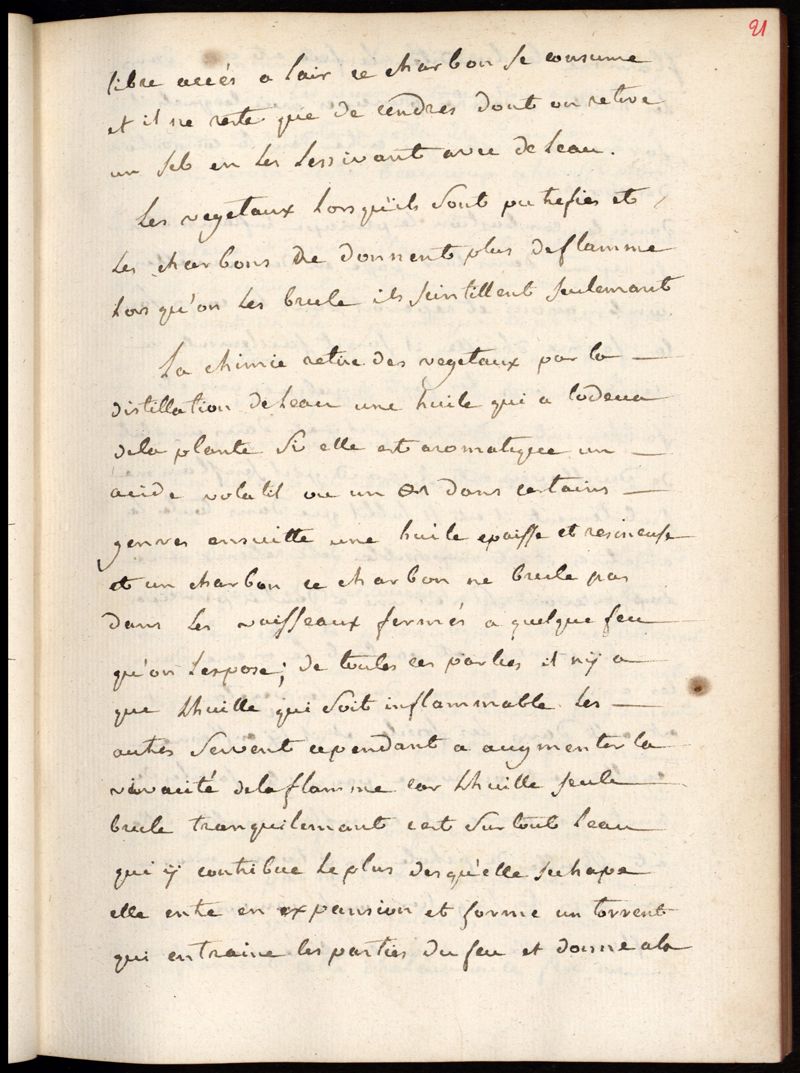 21
libre accés a lair ce charbon se consume
et il ne reste que de cendres dont on retire
un sel en les lessivant avec de leau.
Les vegetaux lorsqu'ils sont putrefies et
les charbons ne donnent plus de flamme
lorsqu'on les brule ils scintillent seulemant
La chimie retire des vegetaux par la —
distillation de leau une huile qui a lodeur
de la plante si elle est aromatique un —
acide volatil ou un dans certains —
genres ensuitte une huile epaisse et resineuse
et un charbon ce charbon ne brule pas
dans les vaisseaux fermés a quelque feu
qu'on lespose; de toutes ces parties il nÿ a
que lhuille qui soit inflammable les —
autres servent cependant a augmenter la
vivacité de la flamme car lhuille seule
brule tranquilemant cest surtout leau
qui ÿ contribue le plus desqu'elle sechape
elle entre en expansion et forme un torrent
qui entraine les parties du feu et donne a la